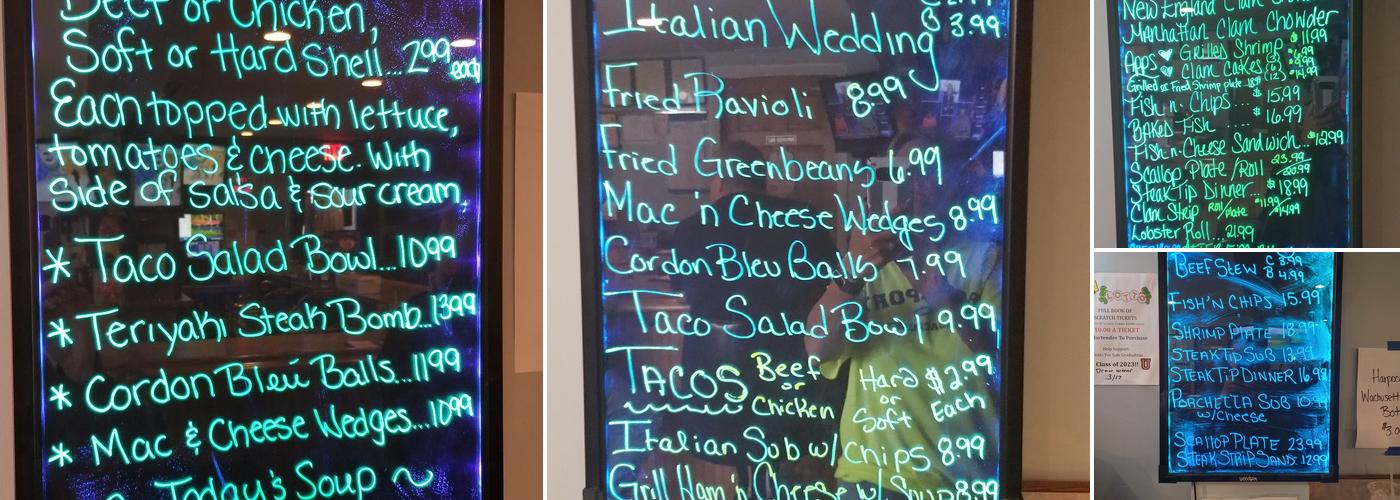 Beef or Chicken,
Soft or Hard Shell... 2.99 each
Each topped with lettuce,
tomatoes & cheese. With
side of salsa & sour cream.
* Taco Salad Bowl... 10.99
* Teriyaki Steak Bomb... 13.99
* Cordon Bleu Balls... 11.99
* Mac & Cheese Wedges... 10.99
Today's Soup ~
Italian Wedding B 3.99
Fried Ravioli 8.99
Fried Greenbeans 6.99
Mac 'n Cheese Wedges 8.99
Cordon Bleu Balls 7.99
Taco Salad Bowl 9.99
TACOS Beef or Chicken Hard or Soft $2.99 Each
Italian Sub w/ Chips 8.99
Grill Ham 'n Cheese w/ Soup 8.99
New England Clam
Manhattan Clam Chowder
Apps Grilled Shrimp $11.99
Clam Cakes
Grilled or Fried Shrimp plate
Fish n Chips ... $15.99
Baked Fish .... $16.99
Fish n Cheese Sandwich.. $12.99
Scallop Plate /Roll 23.99
Steak Tip Dinner... $18.99
Clam Strip Roll/Plate $11.99/$14.99
Lobster Roll... 21.99
BEEF STEW C 3.99 B 4.99
FISH'N CHIPS 15.99
SHRIMP PLATE 18.99
STEAK TIP SUB 13.99
STEAK TIP DINNER 16.99
PORCHETTA SUB 10.99
w/cheese
SCALLOP PLATE 23.99
STEAK STRIP SAND. 12.99
LOTTO
FULL BOOK OF
SCRATCH TICKETS
$10.00 A TICKET
Bartender To Purchase
Help Support
Class of 2023!!
3/17
Harpoo
Wachusett
Bot
$3.0